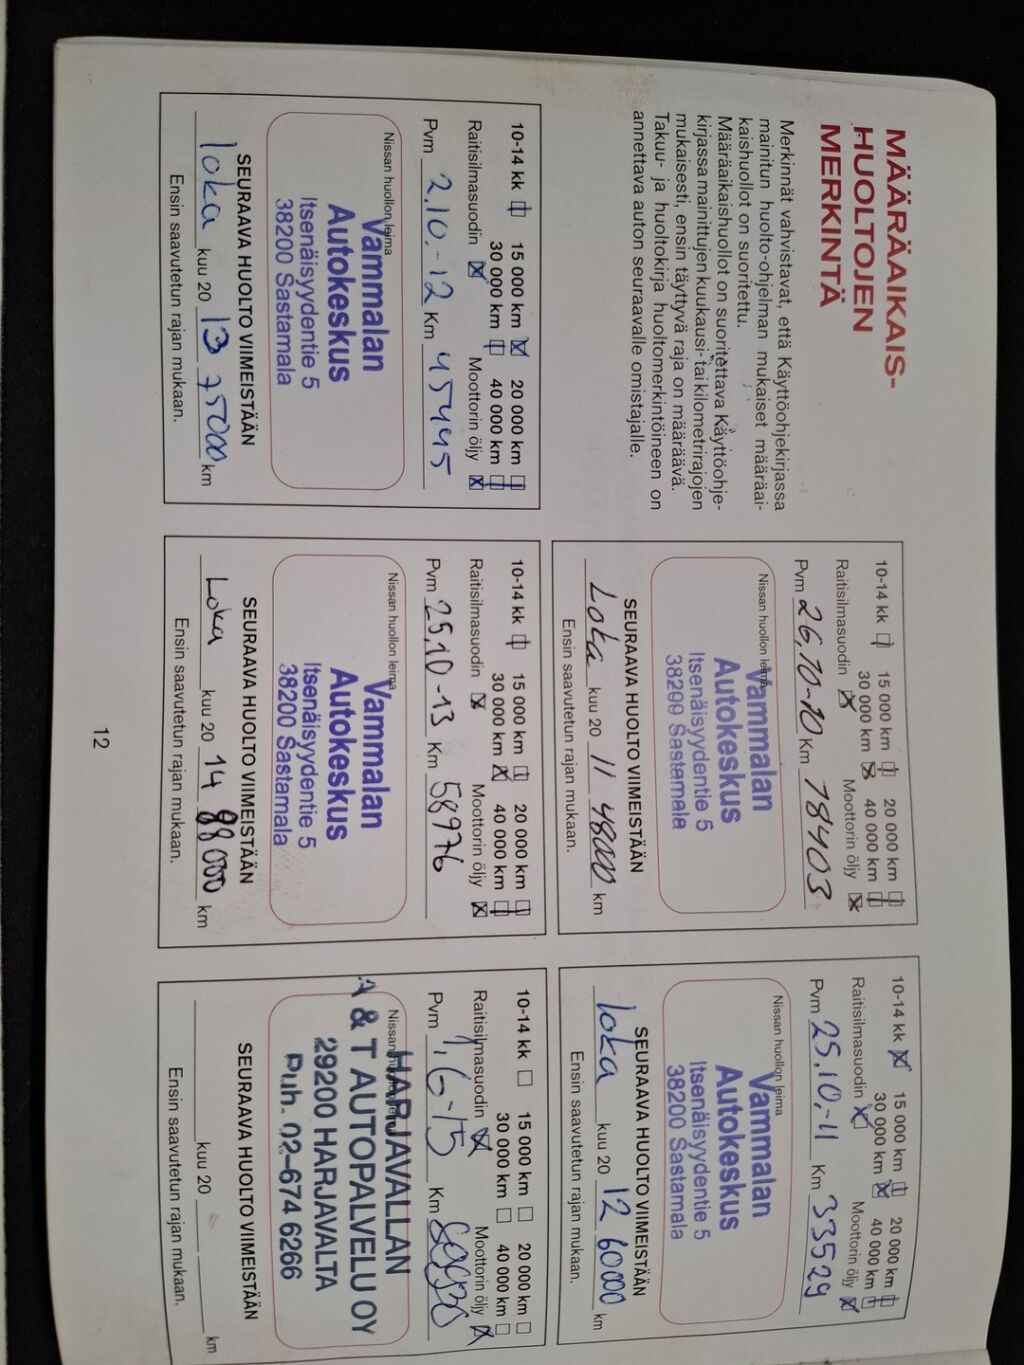 MÄÄRÄAIKAIS-
HUOLTOJEN
MERKINTÄ
Merkinnät vahvistavat, että Käyttöohjekirjassa
mainitun huolto-ohjelman mukaiset määräai-
kaishuollot on suoritettu.
Määräaikaishuollot on suoritettava Käyttöohje-
kirjassa mainittujen kuukausi- tai kilometrirajojen
mukaisesti, ensin täyttyvä raja on määräävä.
Takuu- ja huoltokirja huoltomerkintöineen on
annettava auton seuraavalle omistajalle.
10-14 kk 15 000 km 20 000 km
30 000 km 40 000 km
Raitisilmasuodin Moottorin öljy
Pvm 26,10-10 Km 18403
Nissan huollon leima
Vammalan
Autokeskus
Itsenäisyydentie 5
38200 Sastamala
SEURAAVA HUOLTO VIIMEISTÄÄN
Loka kuu 20 11 48000 km
Ensin saavutetun rajan mukaan.
10-14 kk 15 000 km 20 000 km
30 000 km 40 000 km
Raitisilmasuodin Moottorin öljy
Pvm 25.10.-11 Km 33529
Nissan huollon leima
Vammalan
Autokeskus
Itsenäisyydentie 5
38200 Sastamala
SEURAAVA HUOLTO VIIMEISTÄÄN
loka kuu 20 12 60000 km
Ensin saavutetun rajan mukaan.
10-14 kk 15 000 km 20 000 km
30 000 km 40 000 km
Raitisilmasuodin Moottorin öljy
Pvm 2.10.-12 Km 45445
Nissan huollon leima
Vammalan
Autokeskus
Itsenäisyydentie 5
38200 Sastamala
SEURAAVA HUOLTO VIIMEISTÄÄN
loka kuu 20 13 75000 km
Ensin saavutetun rajan mukaan.
10-14 kk 15 000 km 20 000 km
30 000 km 40 000 km
Raitisilmasuodin Moottorin öljy
Pvm 25,10-13 Km 58976
Nissan huollon leima
Vammalan
Autokeskus
Itsenäisyydentie 5
38200 Sastamala
SEURAAVA HUOLTO VIIMEISTÄÄN
Loka kuu 20 14 88000 km
Ensin saavutetun rajan mukaan.
10-14 kk 15 000 km 20 000 km
30 000 km 40 000 km
Raitisilmasuodin Moottorin öljy
Pvm 1.6-15 Km
Nissan huollon leima
HARJAVALLAN
A & T AUTOPALVELU OY
29200 HARJAVALTA
Puh. 02-674 6266
SEURAAVA HUOLTO VIIMEISTÄÄN
kuu 20 km
Ensin saavutetun rajan mukaan.
12